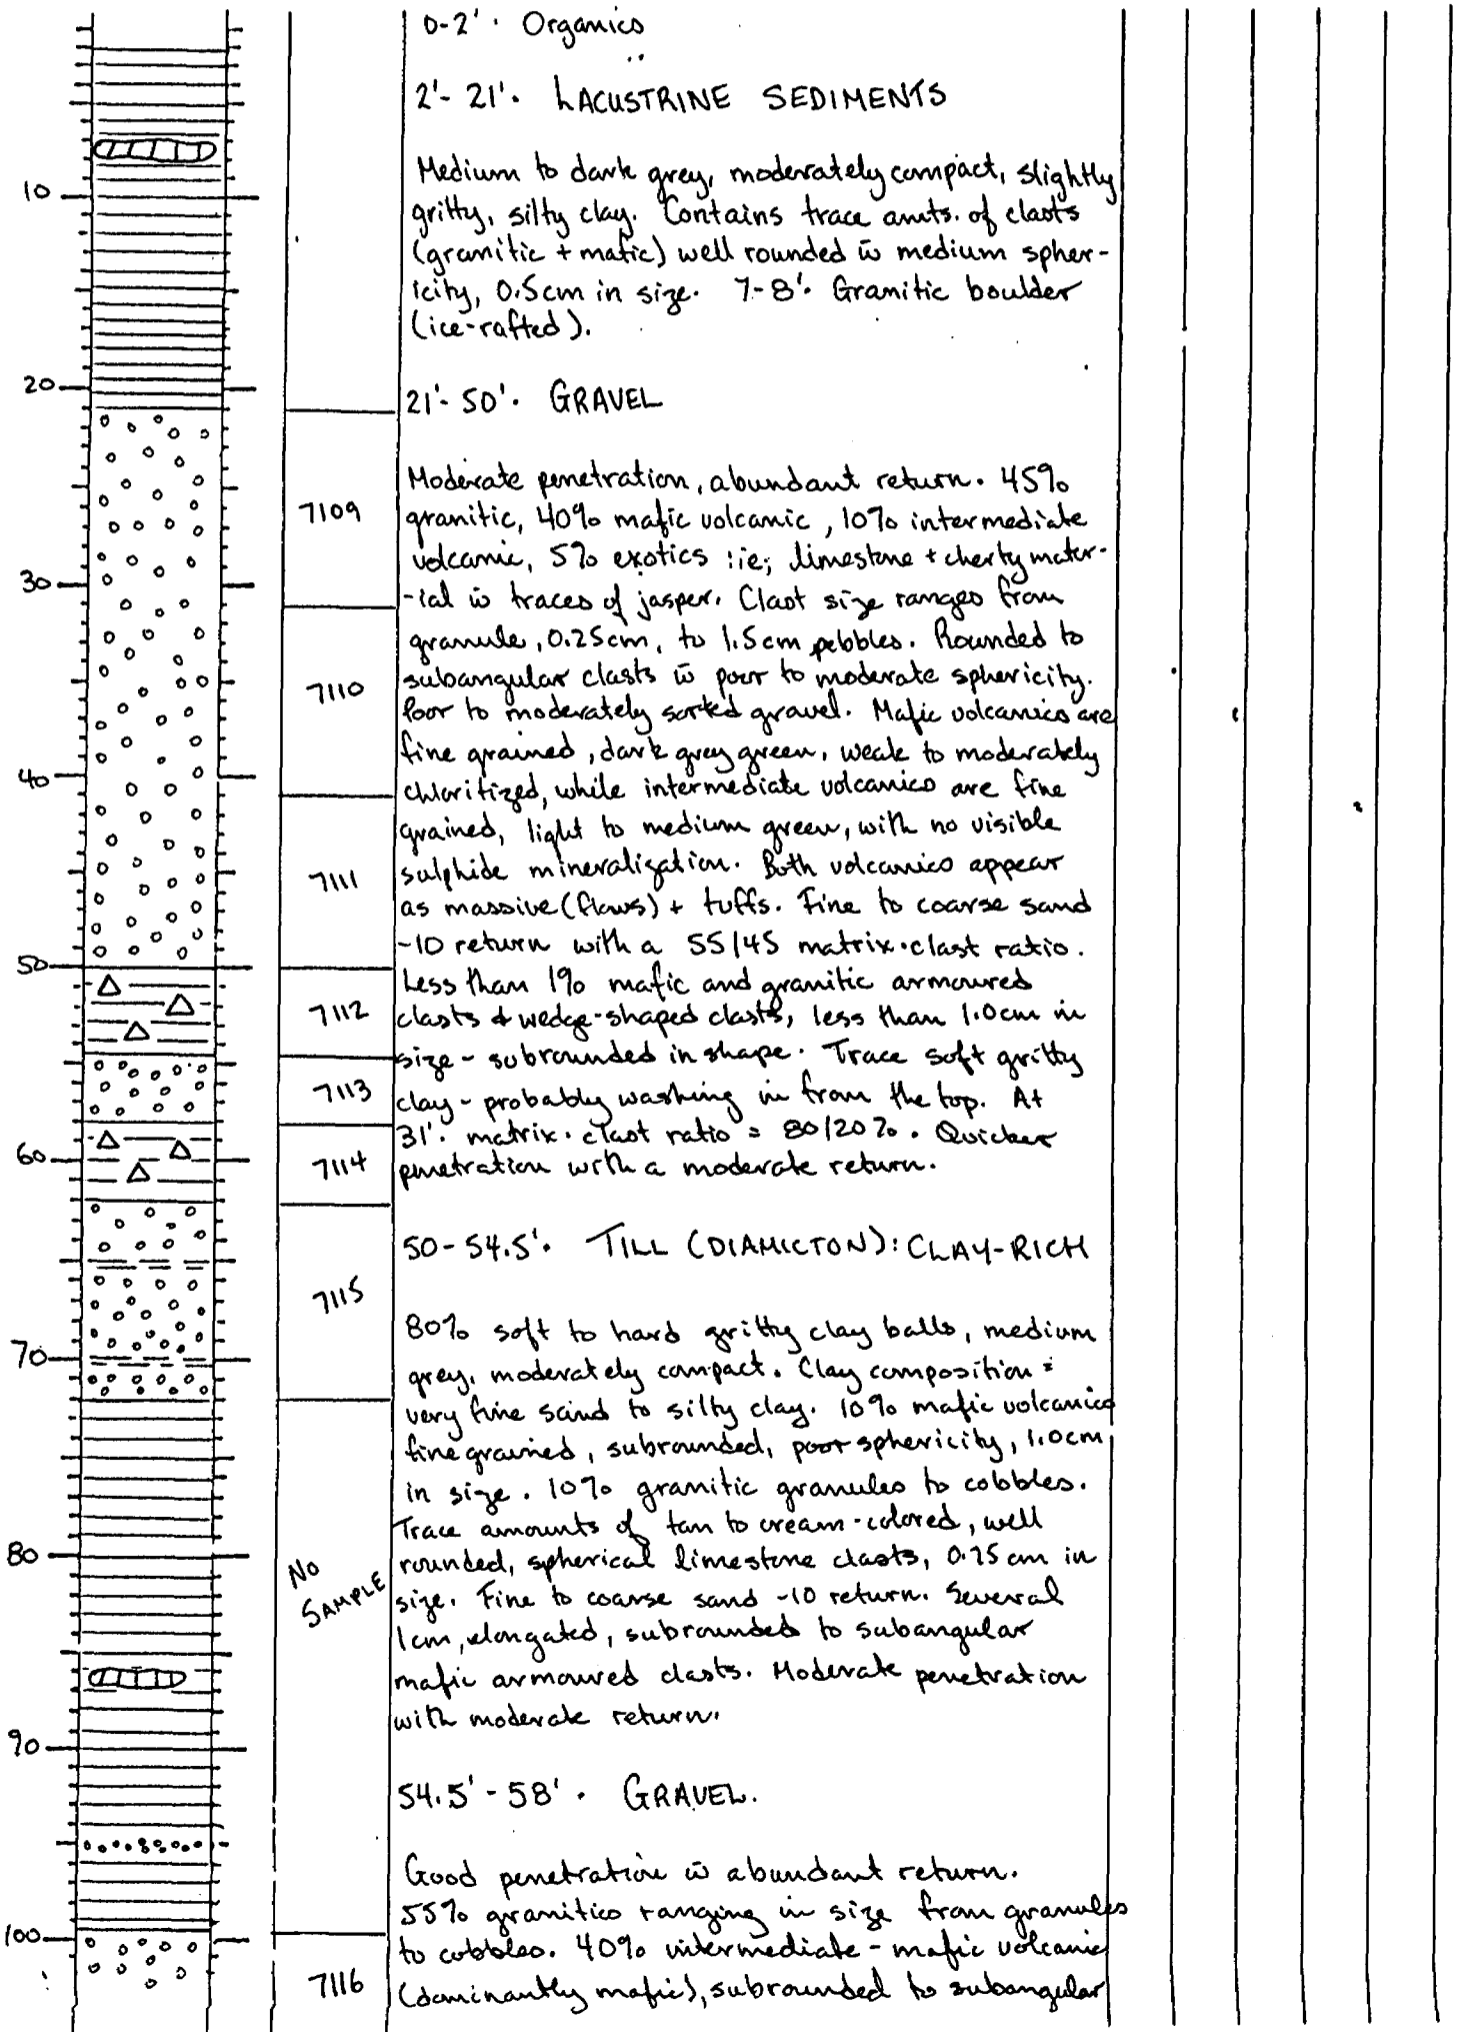 0-2'. Organics
2'- 21'. LACUSTRINE SEDIMENTS
Medium to dark grey, moderately compact, slightly
10
gritty, silty clay. Contains trace amts. of clasts
(granitic + mafic) well rounded w̄ medium spher-
icity, 0.5cm in size. 7-8'. Granitic boulder
(ice-rafted).
20
21'- 50'. GRAVEL
Moderate penetration, abundant return. 45%
7109
granitic, 40% mafic volcanic, 10% intermediate
volcanic, 5% exotics :ie; limestone + cherty mater-
30
-ial w̄ traces of jasper. Clast size ranges from
granule, 0.25cm, to 1.5cm pebbles. Rounded to
7110
subangular clasts w̄ poor to moderate sphericity.
Poor to moderately sorted gravel. Mafic volcanics are
fine grained, dark grey green, weak to moderately
40
chloritized, while intermediate volcanics are fine
grained, light to medium green, with no visible
7111
sulphide mineralization. Both volcanics appear
as massive (flows) + tuffs. Fine to coarse sand
-10 return with a 55/45 matrix.clast ratio.
50
Less than 1% mafic and granitic armoured
7112
clasts & wedge-shaped clasts, less than 1.0cm in
size - subrounded in shape. Trace soft gritty
7113
clay - probably washing in from the top. At
31'. matrix.clast ratio = 80/20%. Quicker
60
7114
penetration with a moderate return.
50-54.5'. TILL (DIAMICTON): CLAY-RICH
7115
80% soft to hard gritty clay balls, medium
70
grey, moderately compact. Clay composition =
very fine sand to silty clay. 10% mafic volcanics
fine grained, subrounded, poor sphericity, 1.0cm
in size. 10% granitic granules to cobbles.
Trace amounts of tan to cream-colored, well
80
No
SAMPLE
rounded, spherical limestone clasts, 0.75cm in
size. Fine to coarse sand -10 return. Several
1cm, elongated, subrounded to subangular
mafic armoured clasts. Moderate penetration
with moderate return.
90
54.5'-58'. GRAVEL.
Good penetration w̄ abundant return.
55% granitics ranging in size from granules
100
to cobbles. 40% intermediate - mafic volcanic
7116
(dominantly mafic), subrounded to subangular